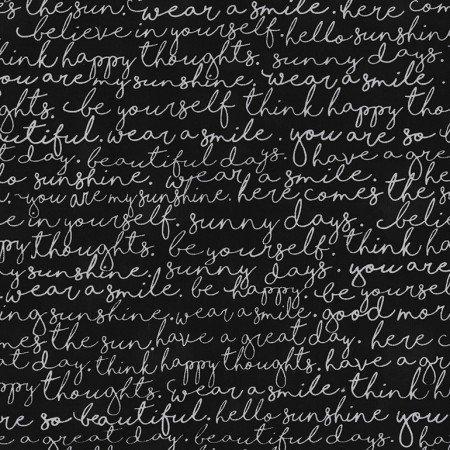 es the sun. wear a smile. here com
believe in yourself. hello sunshine
hink happy thoughts. sunny days.
you are my sunshine. wear a smile.
ghts. be yourself. think happy tho
autiful. wear a smile. you are so b
at day. beautiful days. have a grea
lo sunshine. wear a smile. the
. you are my sunshine. here comes the su
e in yourself. sunny days. believ
ppy thoughts. be yourself. think h
my sunshine. sunny days. you are
wear a smile. be happy. be yourse
ing sunshine. wear a smile. good mor
mes the sun. have a great day. here c
at day. think happy thoughts. have a
ppy thoughts. wear a smile. think h
re so beautiful. hello sunshine you
e a great day. beautiful days. have